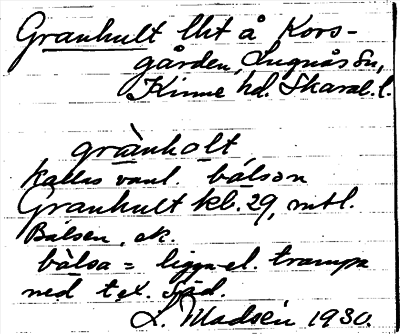 Granhult lht å Kors-
gården, Lugnås sn,
Kinne hd. Skarab. l.
grànholt
kallas vanl. bálson
Granhult kb. 29, mtl.
Bålsen, ek.
bàlsa = ligga el. trampa
ned t.ex. säd.
L. Madsén 1930.